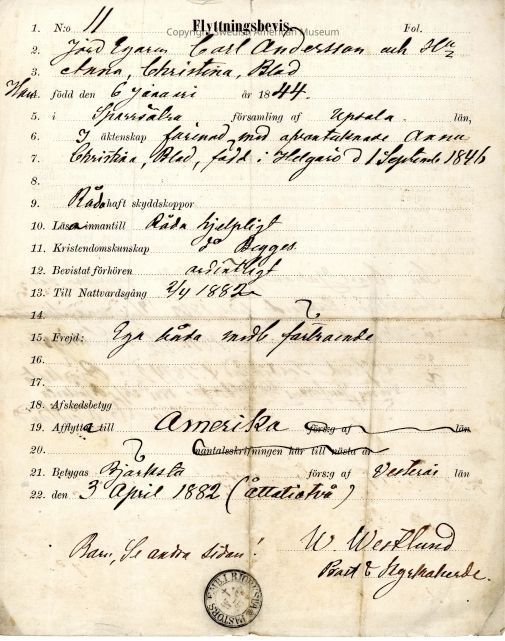 Flyttningsbevis.
Copyright Swedish American Museum
1. N:o 11 Fol.
2. Jord Egaren Carl Andersson och
3. Anna, Christina, Blad
4. född den 6 år 1844.
5. i församling af Upsala län,
6. I äktenskap förenad med Anna
7. Christina, Blad, född i d 1 September 1846
8.
9. Båda haft skyddskoppor
10. Läsa innantill Båda hjelpligt
11. Kristendomskunskap do Begges
12. Bevistat förhören ordentligt
13. Till Nattvardsgång 2/4 1882
14.
15. Frejd: Ega båda godt förtroende
16.
17.
18. Afskedsbetyg
19. Afflytta till Amerika förs:g af län
20. mantalsskrifningen här till nästa år
21. Betygas Björksta förs:g af Vesterås län
22. den 3 April 1882 (åttatiotvå)
Barn, Se andra sidan!
W. Westlund